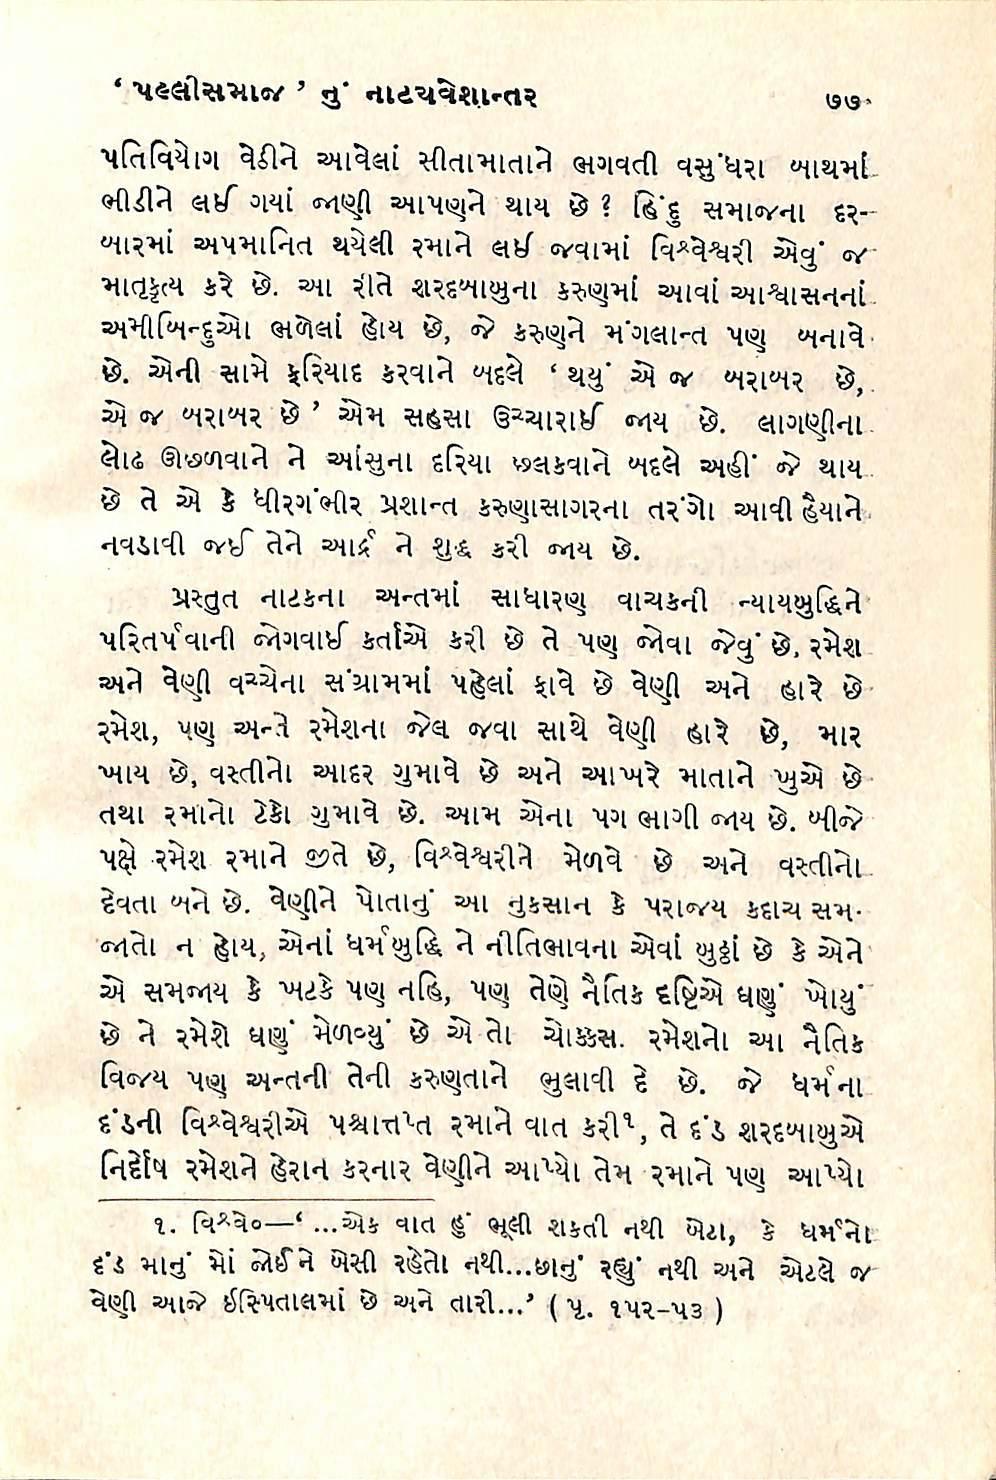 ‘ પલ્લીસમાજ ’ નું નાટ્યવેશાન્તર ૭૭
પતિવિયોગ વેઠીને આવેલાં સીતામાતાને ભગવતી વસુંધરા બાથમાં
ભીડીને લઈ ગયાં જાણી આપણને થાય છે ? હિંદુ સમાજના દર-
બારમાં અપમાનિત થયેલી રમાને લઈ જવામાં વિશ્વેશ્વરી એવું જ
માતૃકૃત્ય કરે છે. આ રીતે શરદબાબુના કરુણમાં આવાં આશ્વાસનનાં
અમીબિન્દુઓ ભળેલાં હોય છે, જે કરુણને મંગલાન્ત પણ બનાવે
છે. એની સામે ફરિયાદ કરવાને બદલે ‘ થયું એ જ બરાબર છે,
એ જ બરાબર છે ’ એમ સહસા ઉચ્ચારાઈ જાય છે. લાગણીના
લોઢ ઊછળવાને ને આંસુના દરિયા છલકવાને બદલે અહીં જે થાય
છે તે એ કે ધીરગંભીર પ્રશાન્ત કરુણાસાગરના તરંગો આવી હૈયાને
નવડાવી જઈ તેને આર્દ્ર ને શુદ્ધ કરી જાય છે.
પ્રસ્તુત નાટકના અન્તમાં સાધારણ વાચકની ન્યાયબુદ્ધિને
પરિતર્પવાની જોગવાઈ કર્તાએ કરી છે તે પણ જોવા જેવું છે. રમેશ
અને વેણી વચ્ચેના સંગ્રામમાં પહેલાં ફાવે છે વેણી અને હારે છે
રમેશ, પણ અન્તે રમેશના જેલ જવા સાથે વેણી હારે છે, માર
ખાય છે, વસ્તીનો આદર ગુમાવે છે અને આખરે માતાને ખુએ છે
તથા રમાનો ટેકો ગુમાવે છે. આમ એના પગ ભાગી જાય છે. બીજે
પક્ષે રમેશ રમાને જીતે છે, વિશ્વેશ્વરીને મેળવે છે અને વસ્તીનો
દેવતા બને છે. વેણીને પોતાનું આ નુકસાન કે પરાજય કદાચ સમ-
જાતો ન હોય, એનાં ધર્મબુદ્ધિ ને નીતિભાવના એવાં બુઠ્ઠાં છે કે એને
એ સમજાય કે ખટકે પણ નહિ, પણ તેણે નૈતિક દૃષ્ટિએ ઘણું ખોયું
છે ને રમેશે ઘણું મેળવ્યું છે એ તો ચોક્કસ. રમેશનો આ નૈતિક
વિજય પણ અન્તની તેની કરુણતાને ભુલાવી દે છે. જે ધર્મના
દંડની વિશ્વેશ્વરીએ પશ્ચાત્તપ્ત રમાને વાત કરી૧, તે દંડ શરદબાબુએ
નિર્દોષ રમેશને હેરાન કરનાર વેણીને આપ્યો તેમ રમાને પણ આપ્યો
૧. વિશ્વે૦—‘ ...એક વાત હું ભૂલી શકતી નથી બેટા, કે ધર્મનો
દંડ માનું મોં જોઈને બેસી રહેતો નથી...છાનું રહ્યું નથી અને એટલે જ
વેણી આજે ઈસ્પિતાલમાં છે અને તારી...’ ( પૃ. ૧૫૨-૫૩ )